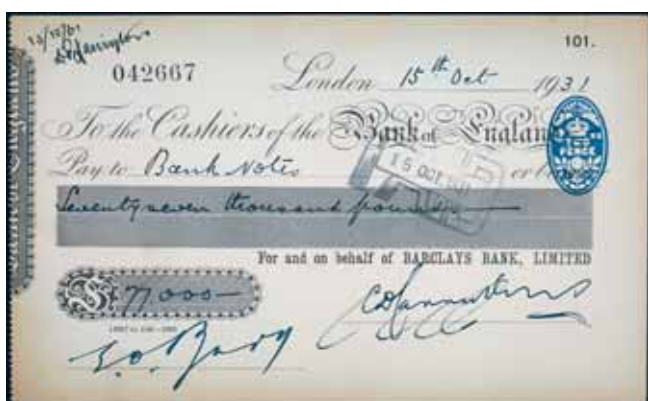 042667
101.
London 15th Oct 1931
To the Cashiers of the Bank of England
Pay to Bank Notes or
Seventy seven thousand pounds
15 OCT
PENCE
For and on behalf of BARCLAYS BANK, LIMITED
£ 77,000